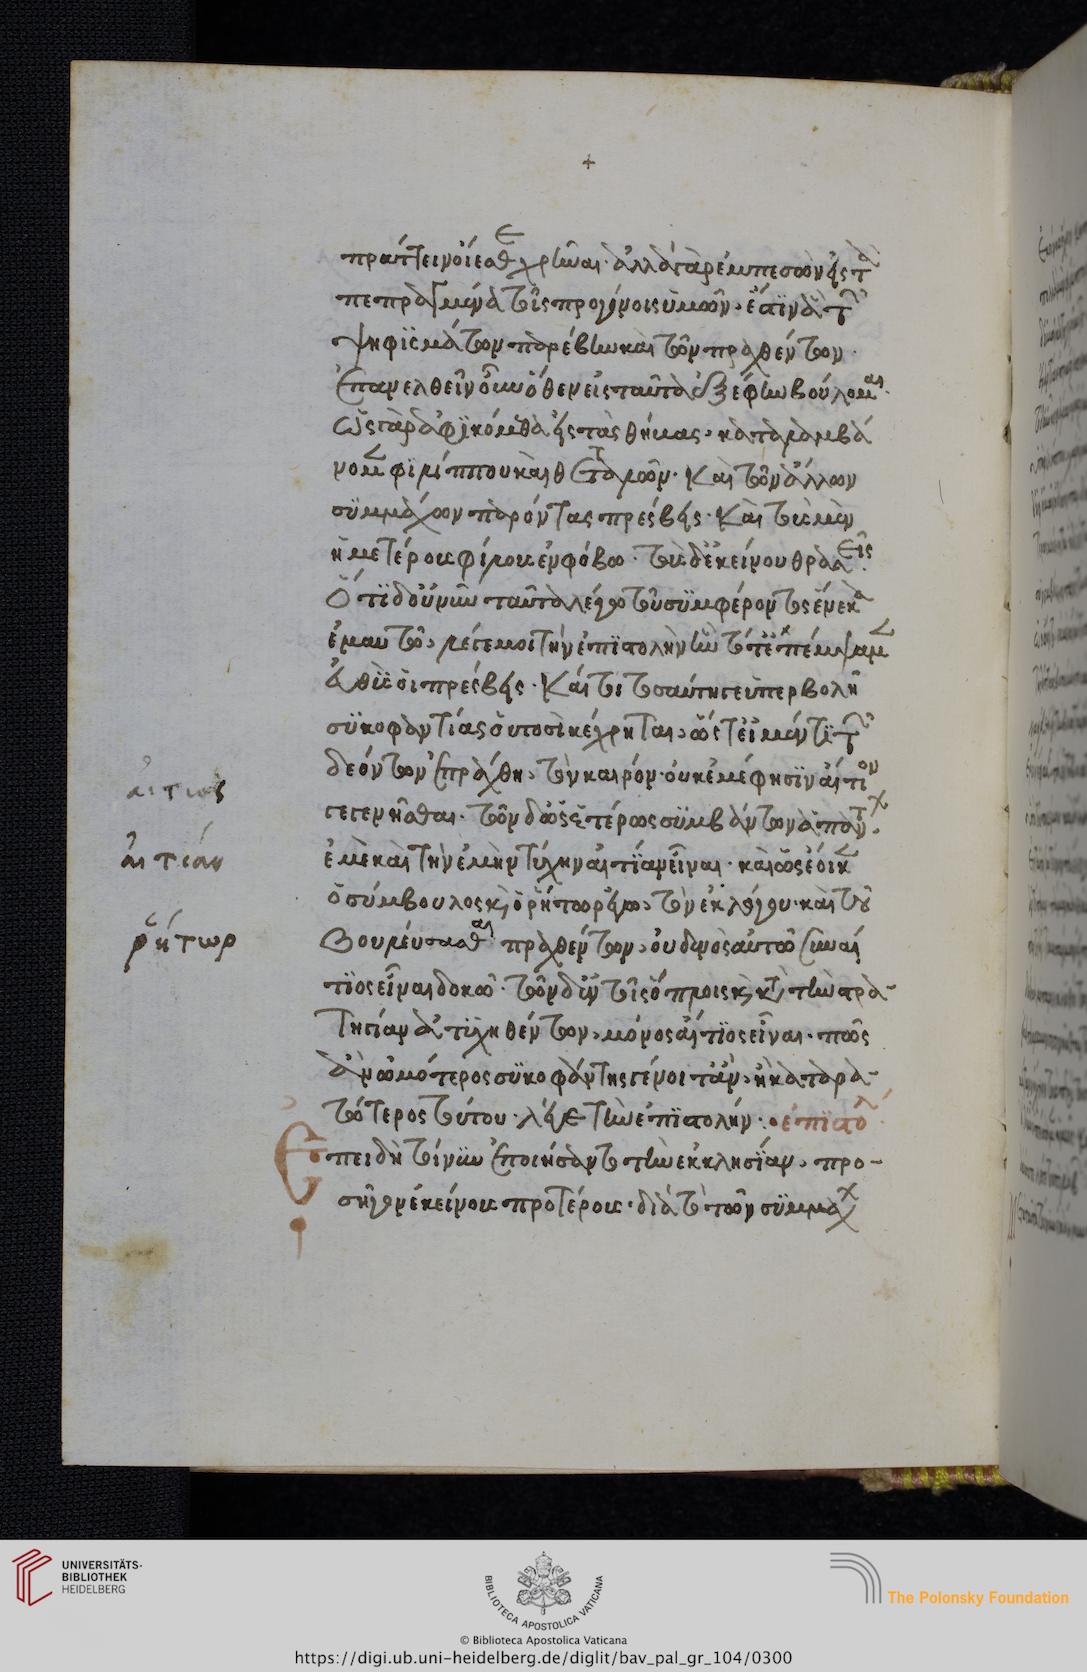 +
πράττειν οἴεσθε χρῆναι· ἀλλὰ γὰρ ἐμπεσὼν εἰς τὰ
πεπραγμένα τοῖς προγόνοις ὑμῶν, ἔστιν ἃ τῶν
ψηφισμάτων παρέβην καὶ τῶν πραχθέντων·
ἐπανελθεῖν οὖν ὅθεν εἰς ταῦτα ἐξέβην βούλομαι·
ὡς γὰρ ἀφικόμεθα εἰς τὰς θήβας, καταλαμβά
νομεν φιλίππου καὶ θετταλῶν· καὶ τῶν ἄλλων
συμμάχων παρόντας πρέσβεις· καὶ τοὺς μὲν
ἡμετέρους φίλους ἐν φόβῳ· τοὺς δ' ἐκείνου θρασεῖς·
ὅτι δ' οὐ νῦν ταῦτα λέγω τοῦ συμφέροντος ἕνεκα
ἐμαυτῶ, λέγε μοι τὴν ἐπιστολὴν ἣν τότε ἐπέμψαμεν
εὐθὺς οἱ πρέσβεις· καί τοι τοσαύτῃ γε ὑπερβολῇ
συκοφαντίας οὑτοσὶ κέχρηται, ὥστ' εἰ μέν τι τῶν
δεόντων ἐπράχθη, τὸν καιρόν· οὐκ ἐμέ φησιν αἴτιον
γεγενῆσθαι· τῶν δ' ὡς ἑτέρως συμβάντων ἁπάντων,
ἐμὲ καὶ τὴν ἐμὴν τύχην αἰτίαν εἶναι· καὶ ὡς ἔοικεν
ὁ σύμβουλος καὶ ὁ ῥήτωρ ἐγὼ, τῶν ἐκ λόγου· καὶ τοῦ
βουλεύσασθαι πραχθέντων, οὐδενὸς αὐτῶ συναί
τιος εἶναι δοκῶ· τῶν δ' ἐν τοῖς ὅπλοις καὶ κατὰ τὴν στρα-
τηγίαν ἀτυχηθέντων, μόνος αἴτιος εἶναι· πῶς
ἂν ὠμότερος συκοφάντης γένοιτ' ἂν, ἢ καταρα-
τότερος τούτου· λέγε τὴν ἐπιστολήν· ἐπιστολή·
Ἐπειδὴ τοίνυν ἐποιήσαντο τὴν ἐκκλησίαν, προ-
σῆγον ἐκείνους προτέρους· διὰ τὸ τῶν συμμάχων
αἴτιος
αἰτίαν
ῥήτωρ
UNIVERSITÄTS-
BIBLIOTHEK
HEIDELBERG
BIBLIOTECA APOSTOLICA VATICANA
The Polonsky Foundation
© Biblioteca Apostolica Vaticana
https://digi.ub.uni-heidelberg.de/diglit/bav_pal_gr_104/0300